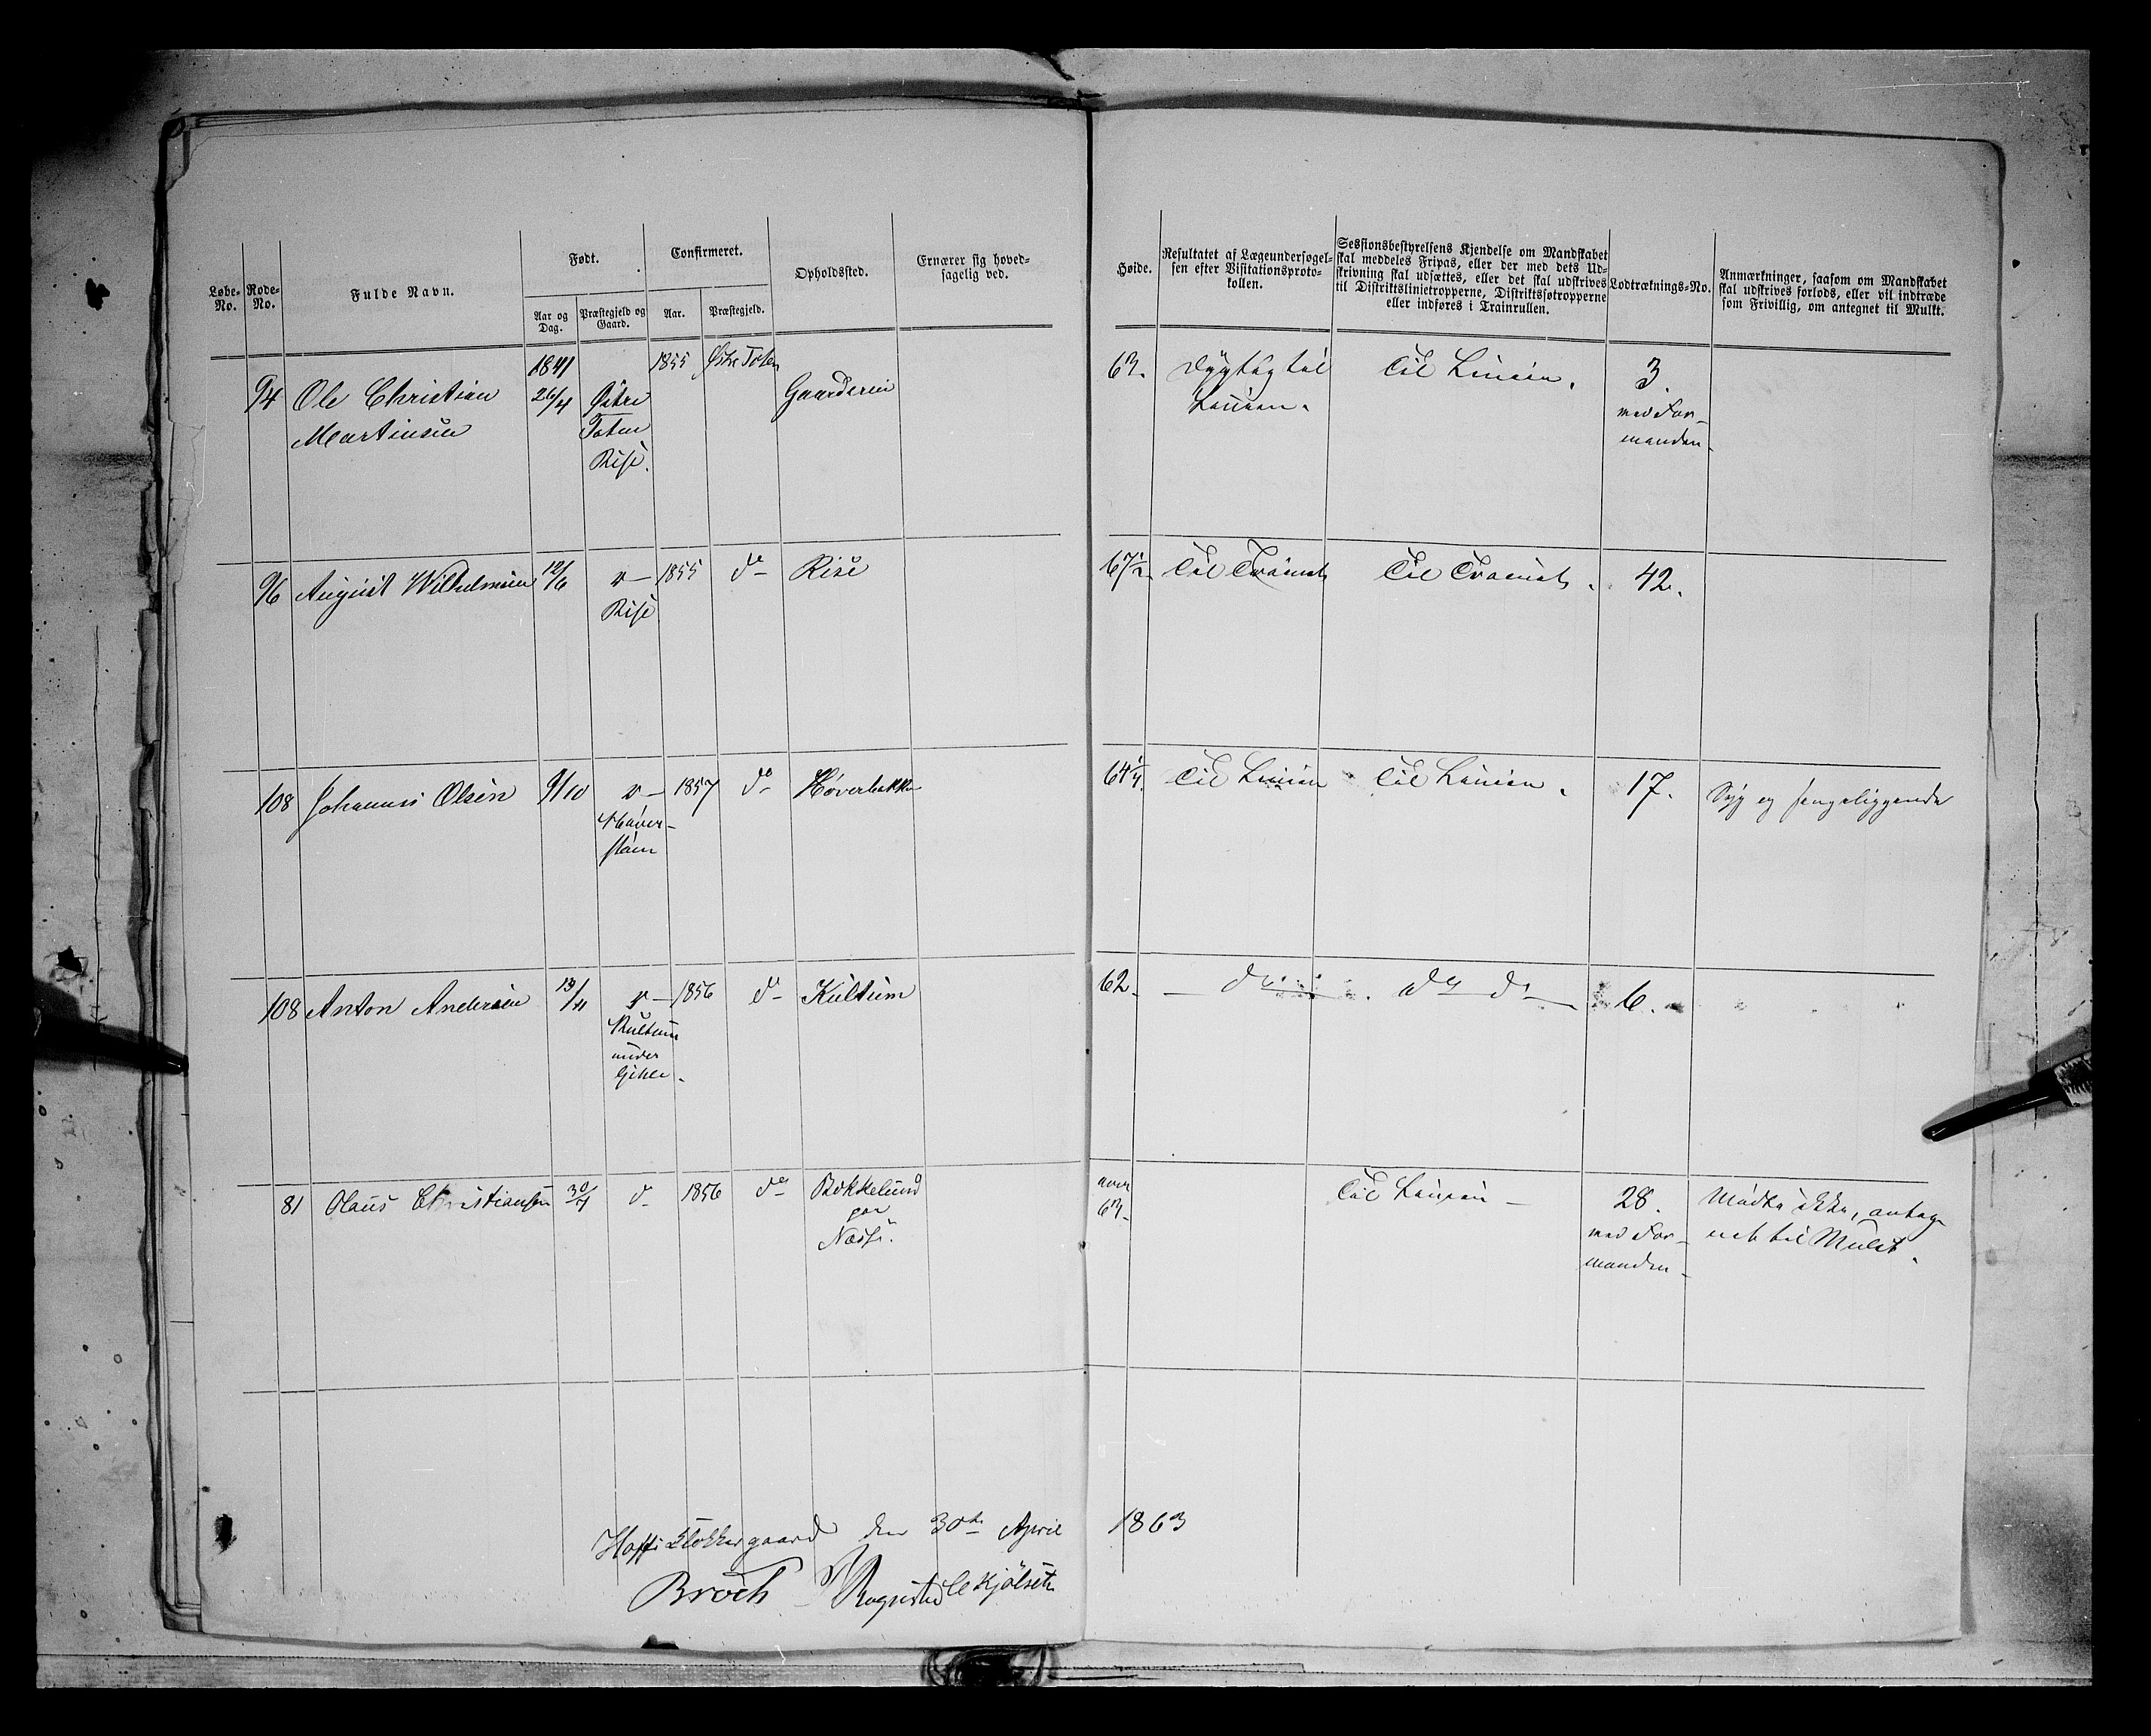 Løbe-No.
Rode-No.
Fulde Navn.
Født.
Aar og Dag.
Præstegjeld og Gaard.
Confirmeret.
Aar.
Præstegjeld.
Opholdssted.
Ernærer sig hoved-
sagelig ved.
Høide.
Resultatet af Lægeundersøgel-
sen efter Visitationsproto-
kollen.
Sessionsbestyrelsens Kjendelse om Mandskabet
skal meddeles Fripas, eller der med dets Ud-
skrivning skal udsættes, eller det skal udskrives
til Distriktslinietropperne, Distriktsfotropperne
eller indføres i Trainrullen.
Lodtræknings-No.
Anmærkninger, saasom om Mandskabet
skal udskrives forlods, eller vil indtræde
som Frivillig, om antegnet til Mulkt.
1841 1855 Østre Toten
94 Ole Christian 26/4 Østre Gaarderen 63. Dygtig til Til Linien. 3.
Martinsen Toten Linien. med For-
Rise. manden.
96 August Wilhelmsen 12/6 v— 1855 do Rise 67½. Til Trainet Til Trainet. 42.
Rise
108 Johannes Olsen 9/10 v— 1857 do Høverbakke 64¼. Til Linien Til Linien. 17. Syg og sengeliggende
108 Anton Andersen 13/11 v— 1856 do Kultum 62. do do do 6.
Kultum
under
81 Olaus Christiansen 1856 do Bakkelund over 63. Til Linien 28. Mødte ikke, anteg-
paa med For- net til Mulct.
Næss. manden
Hoffs Klokkergaard den 30te April 1863
Broch